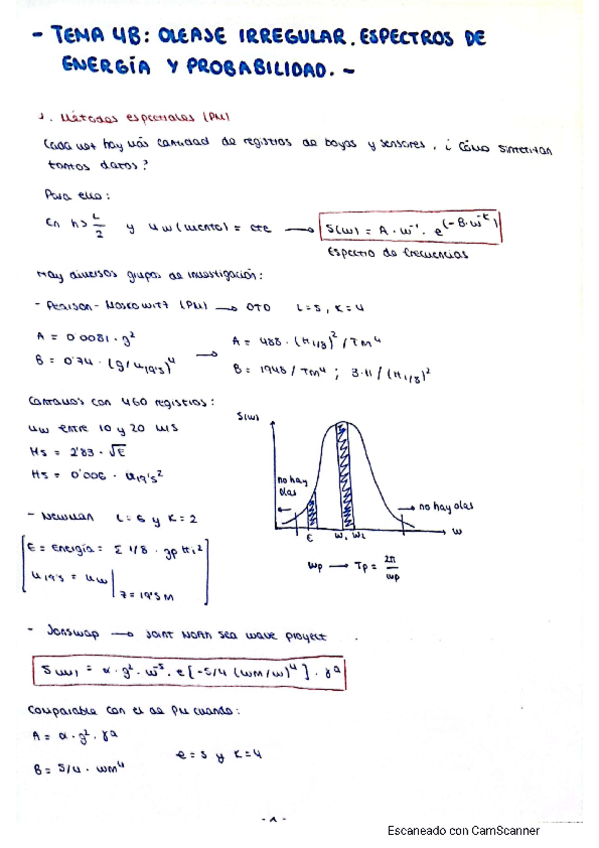 - TEMA 4B: OLEAJE IRREGULAR. ESPECTROS DE
ENERGÍA Y PROBABILIDAD. -
1. Métodos espectrales (PM)
Cada vez hay más cantidad de registros de boyas y sensores, ¿ Cómo sintetizan
tantos datos?
Para ello:
En h > L/2 y uw (viento) = cte → S(w) = A · w^-l · e^(-B·w^-k)
Espectro de frecuencias
Hay diversos grupos de investigación:
- Pearson - Moskowitz (PM) → OTO L=5, K=4
A = 0'0081 · g² → A = 488 · (H1/3)² / Tm⁴
B = 0'74 · (g/u19's)⁴ B = 1948 / Tm⁴ ; 3.11 / (H1/3)²
Contamos con 460 registros:
uw entre 10 y 20 m/s
Hs = 2'83 · √E
Hs = 0'006 · u19's²
S(w)
no hay
olas
no hay olas
E w1 w2 w
wp → Tp = 2π/wp
- Newman L=6 y K=2
E = Energía = Σ 1/8 · gρ Hi²
u19's = uw | z=19's m
- Jonswap → Joint North Sea wave proyect
S(w) = α · g² · w^-5 · e[-5/4 (wm/w)⁴] · γ^a
Comparable con el de PM cuando:
A = α · g² · γ^a
e=5 y K=4
B = 5/4 · wm⁴
- 1 -
Escaneado con CamScanner